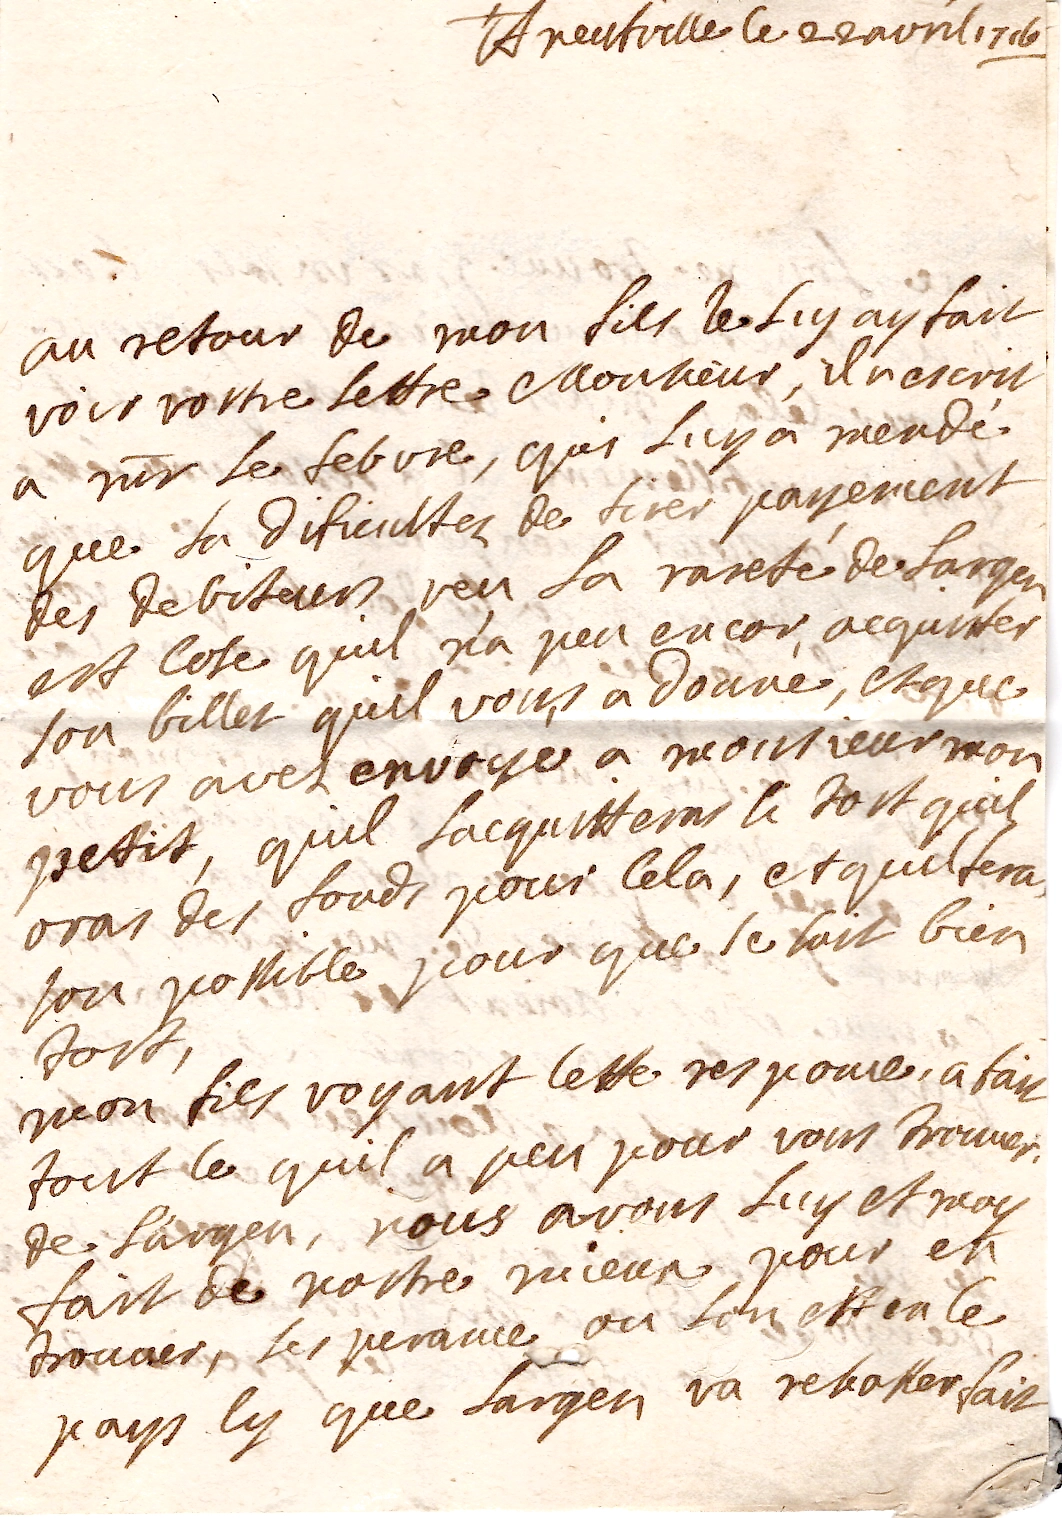 A neufville le 22 avril 1716
au retour de mon fils je luy ay fait
voir vostre lettre Monsieur, il a escrit
a mr le febvre, qui luy a mendé
que la dificultez de tirer payement
des debiteurs veu la rareté de largen
est cose quil n'a peu encor acquitter
son billet quil vous a donné, et que
vous avez envoyé a monsieur mon
petit, quil lacquitteras si tost quil
oras des fonds pour cela, et quil fera
son possible pour que se soit bien
tost,
mon fils voyant cette responce, a fait
tout ce quil a peu pour vous trouver
de l'argen, nous avons luy et moy
fait de nostre mieux pour en
trouver, lesperance ou lon est en ce
pays cy que largen va rehosser fait